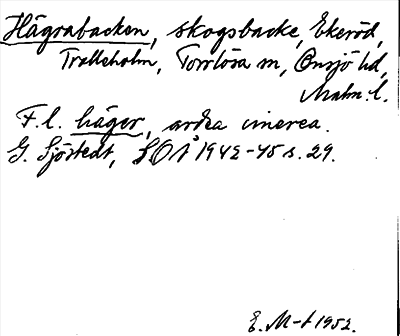 Hägrabacken, skogsbacke, Ekeröd,
Trolleholm, Torrlösa sn, Onsjö hd,
Malm. l.
F. l. häger, ardea cinerea.
G. Sjöstedt, SOÅ 1942-45 s. 29.
E. M-t 1952.